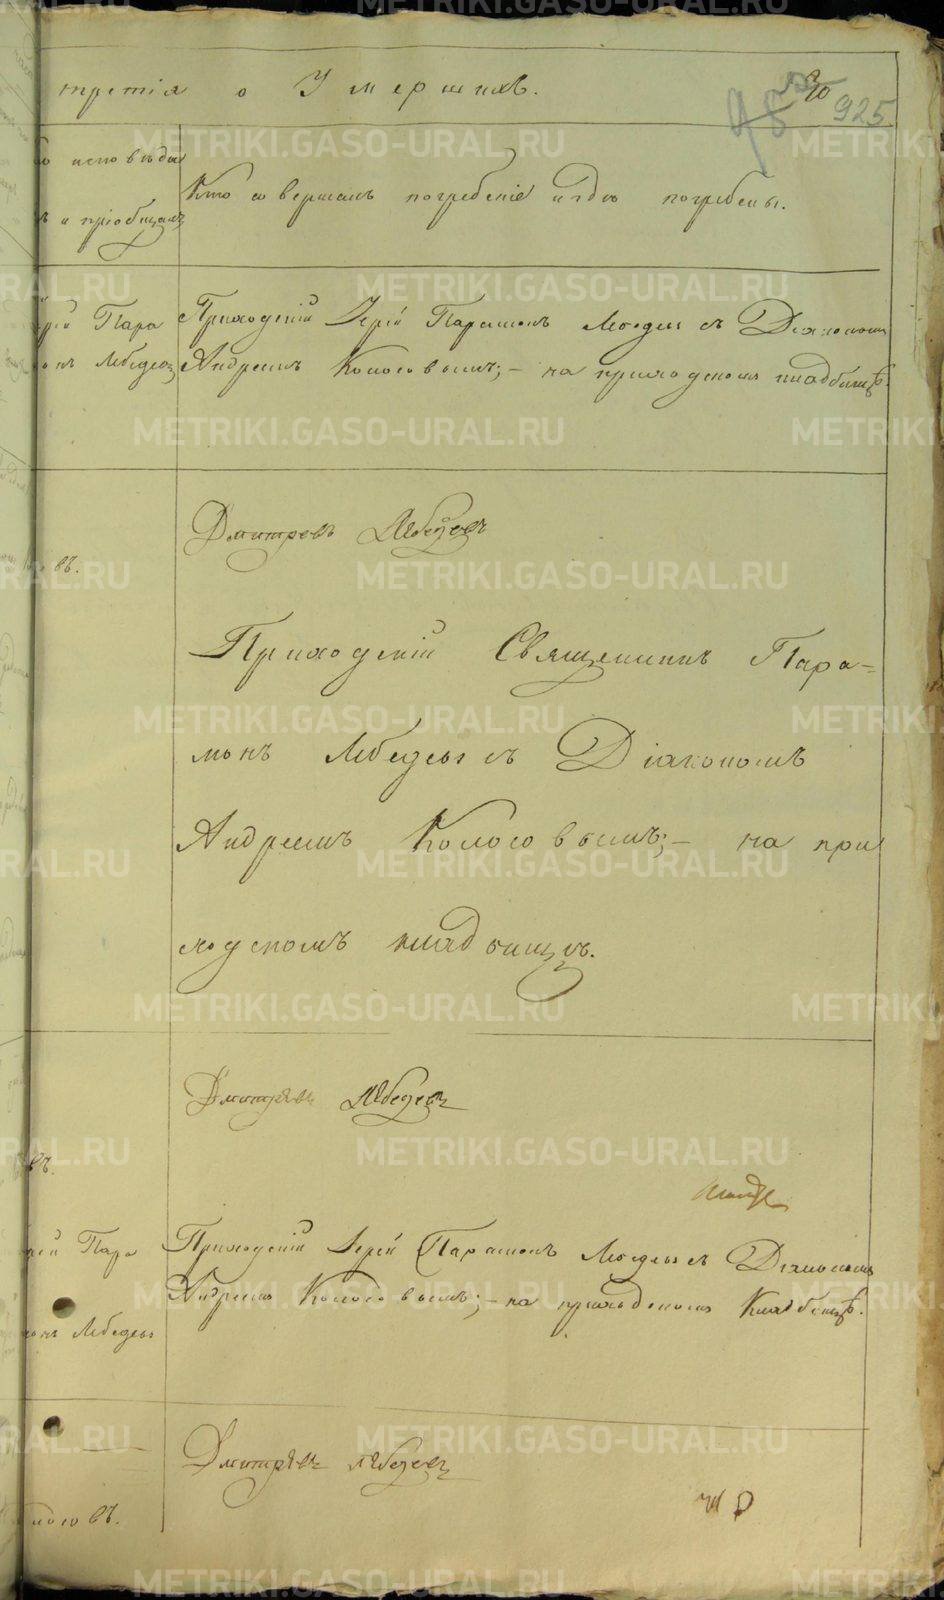 третія о Умершихъ.
925
исповѣды
и пріобщалъ
Кто совершалъ погребеніе и гдѣ погребены.
рей Пара
монъ Лебедевъ
Приходскій Іерей Парамонъ Лебедевъ съ Діакономъ
Андреемъ Колосовымъ; – на приходскомъ кладбищѣ.
Дмитрев Лебедевъ
въ.
Приходскій Священникъ Пара=
монъ Лебедевъ съ Діакономъ
Андреемъ Колосовымъ; – на при
ходскомъ кладбищѣ.
Дмитрев Лебедевъ
въ.
рей Пара
монъ Лебедевъ
Приходскій Іерей Парамонъ Лебедевъ съ Діакономъ
Андреемъ Колосовымъ; – на приходскомъ Кладбищѣ.
Дмитрев Лебедевъ
лосовъ.
METRIKI.GASO-URAL.RU